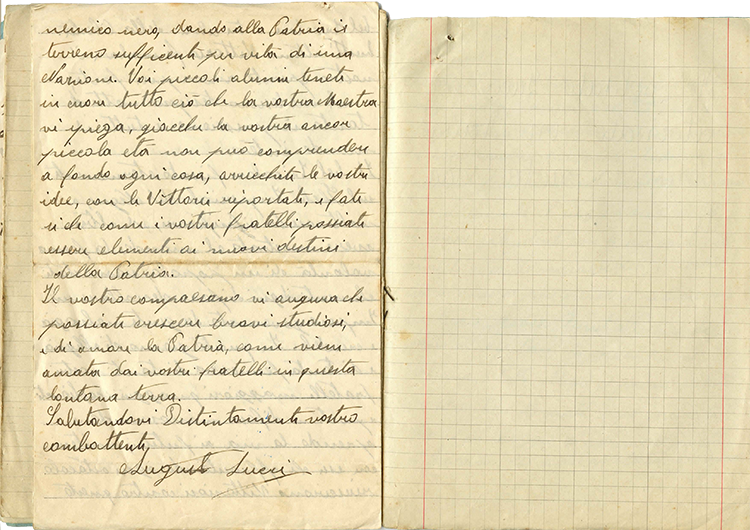 nemico nero, dando alla Patria il
terreno sufficenti per vita di una
Nazione. Voi piccoli alunni teneti
in cuori tutto ciò che la vostra Maestra
vi spiega, giacchè la vostra ancor
piccola età non può comprendere
a fondo ogni cosa, arrecchiti le vostri
idee, con le Vittorie riportati, e fati
si che come i vostri fratelli possiati
essere elementi ai nuovi destini
della Patria.
Il vostro compaesano vi augura che
possiati crescere bravi studiosi,
e di amare la Patrià, come viene
amata dai vostri fratelli in questa
lontana terra.
Salutandovi Distintamenti vostro
combattenti,
August